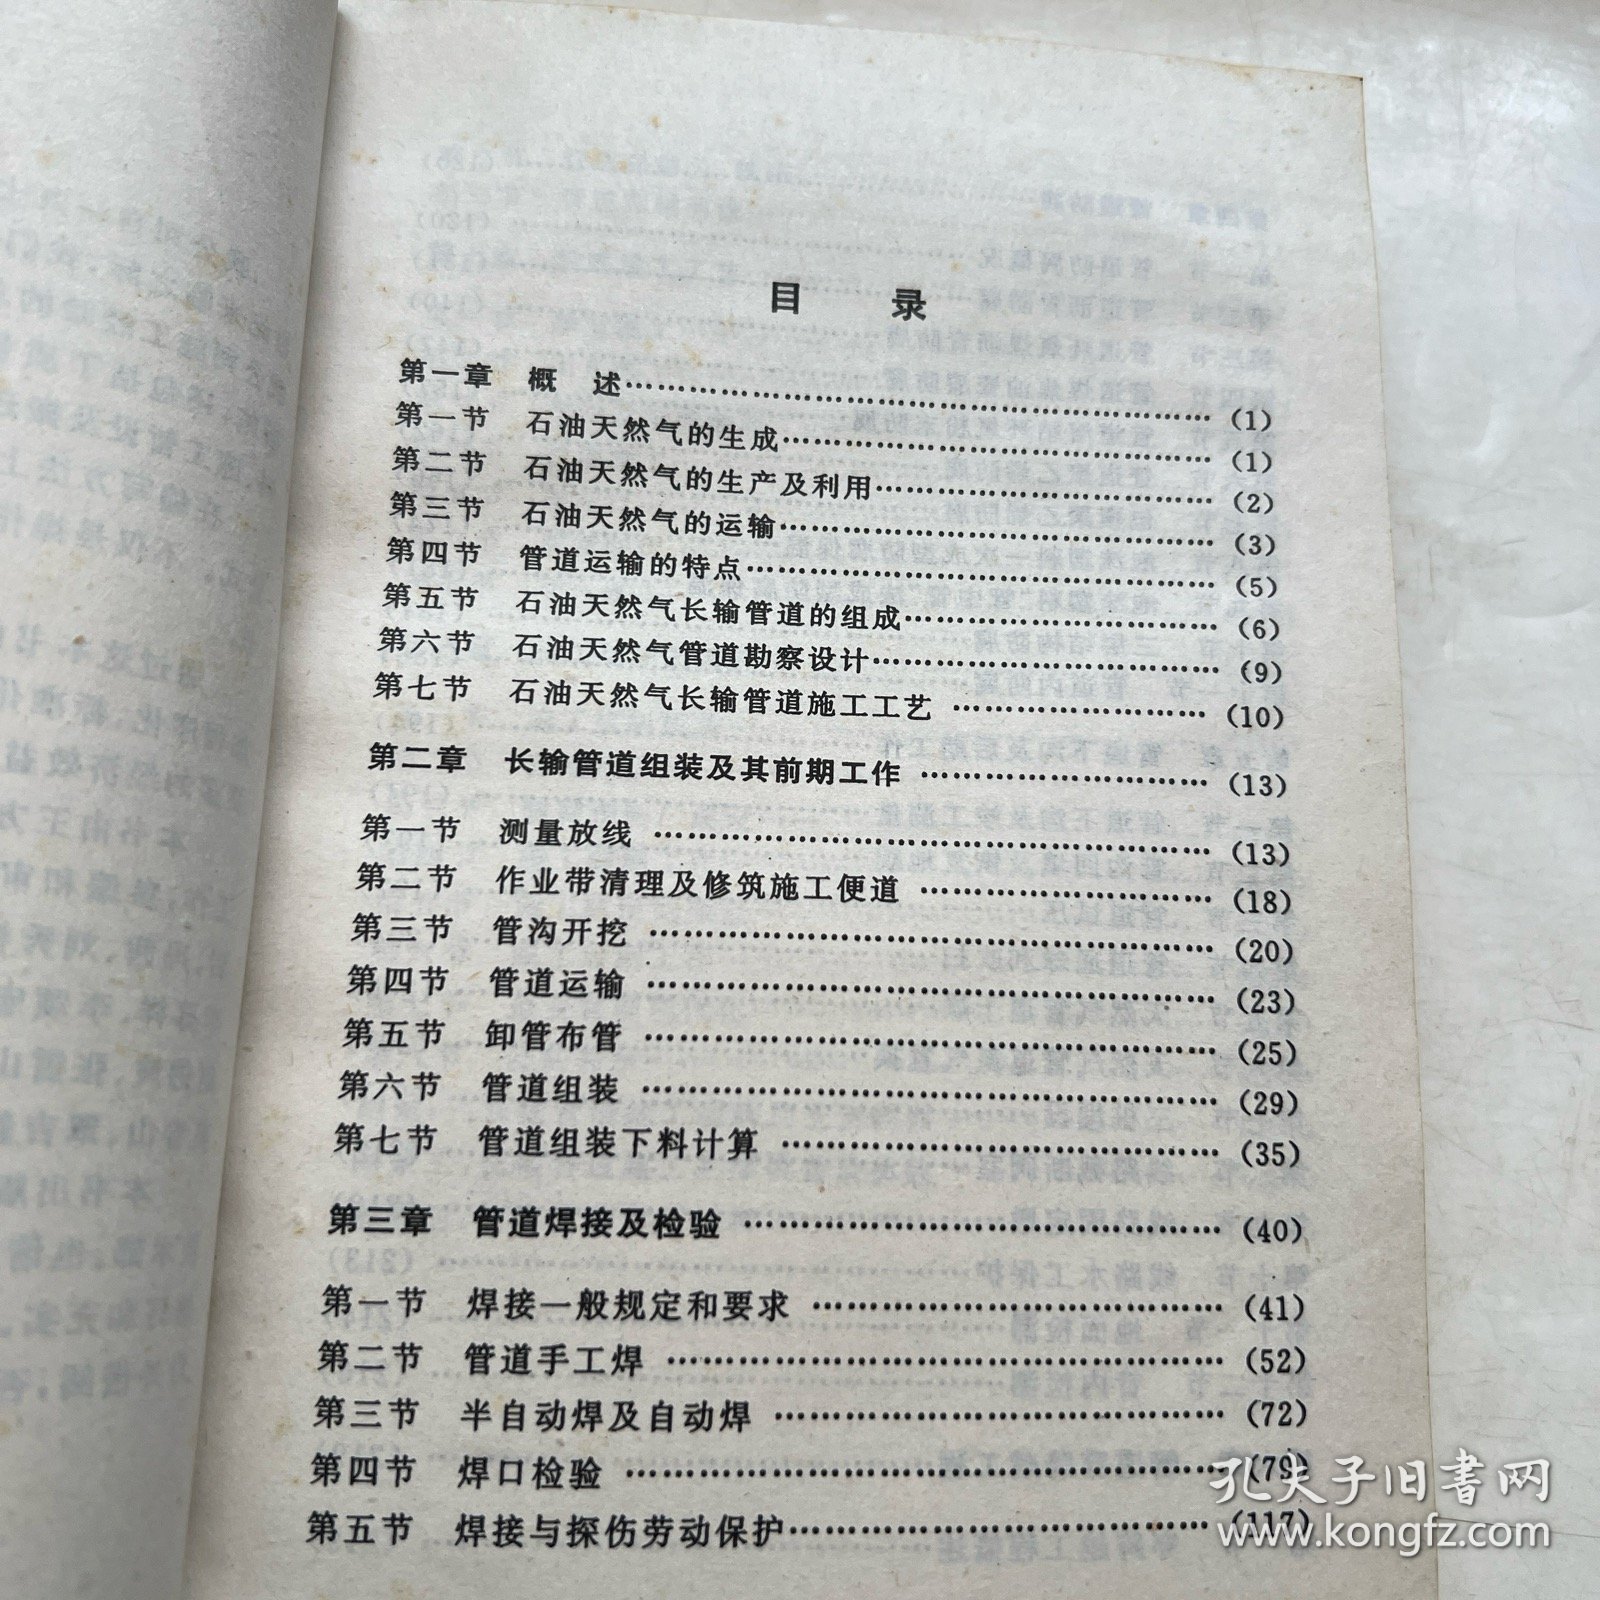 目 录
第一章 概 述……………………………………………………(1)
第一节 石油天然气的生成………………………………………(1)
第二节 石油天然气的生产及利用………………………………(2)
第三节 石油天然气的运输………………………………………(3)
第四节 管道运输的特点…………………………………………(5)
第五节 石油天然气长输管道的组成……………………………(6)
第六节 石油天然气管道勘察设计………………………………(9)
第七节 石油天然气长输管道施工工艺 ………………………(10)
第二章 长输管道组装及其前期工作 …………………………(13)
第一节 测量放线 ………………………………………………(13)
第二节 作业带清理及修筑施工便道 …………………………(18)
第三节 管沟开挖 ………………………………………………(20)
第四节 管道运输 ………………………………………………(23)
第五节 卸管布管 ………………………………………………(25)
第六节 管道组装 ………………………………………………(29)
第七节 管道组装下料计算 ……………………………………(35)
第三章 管道焊接及检验 ………………………………………(40)
第一节 焊接一般规定和要求 …………………………………(41)
第二节 管道手工焊 ……………………………………………(52)
第三节 半自动焊及自动焊 ……………………………………(72)
第四节 焊口检验 ………………………………………………(79)
第五节 焊接与探伤劳动保护…………………………………(117)
孔夫子旧书网
www.kongfz.com